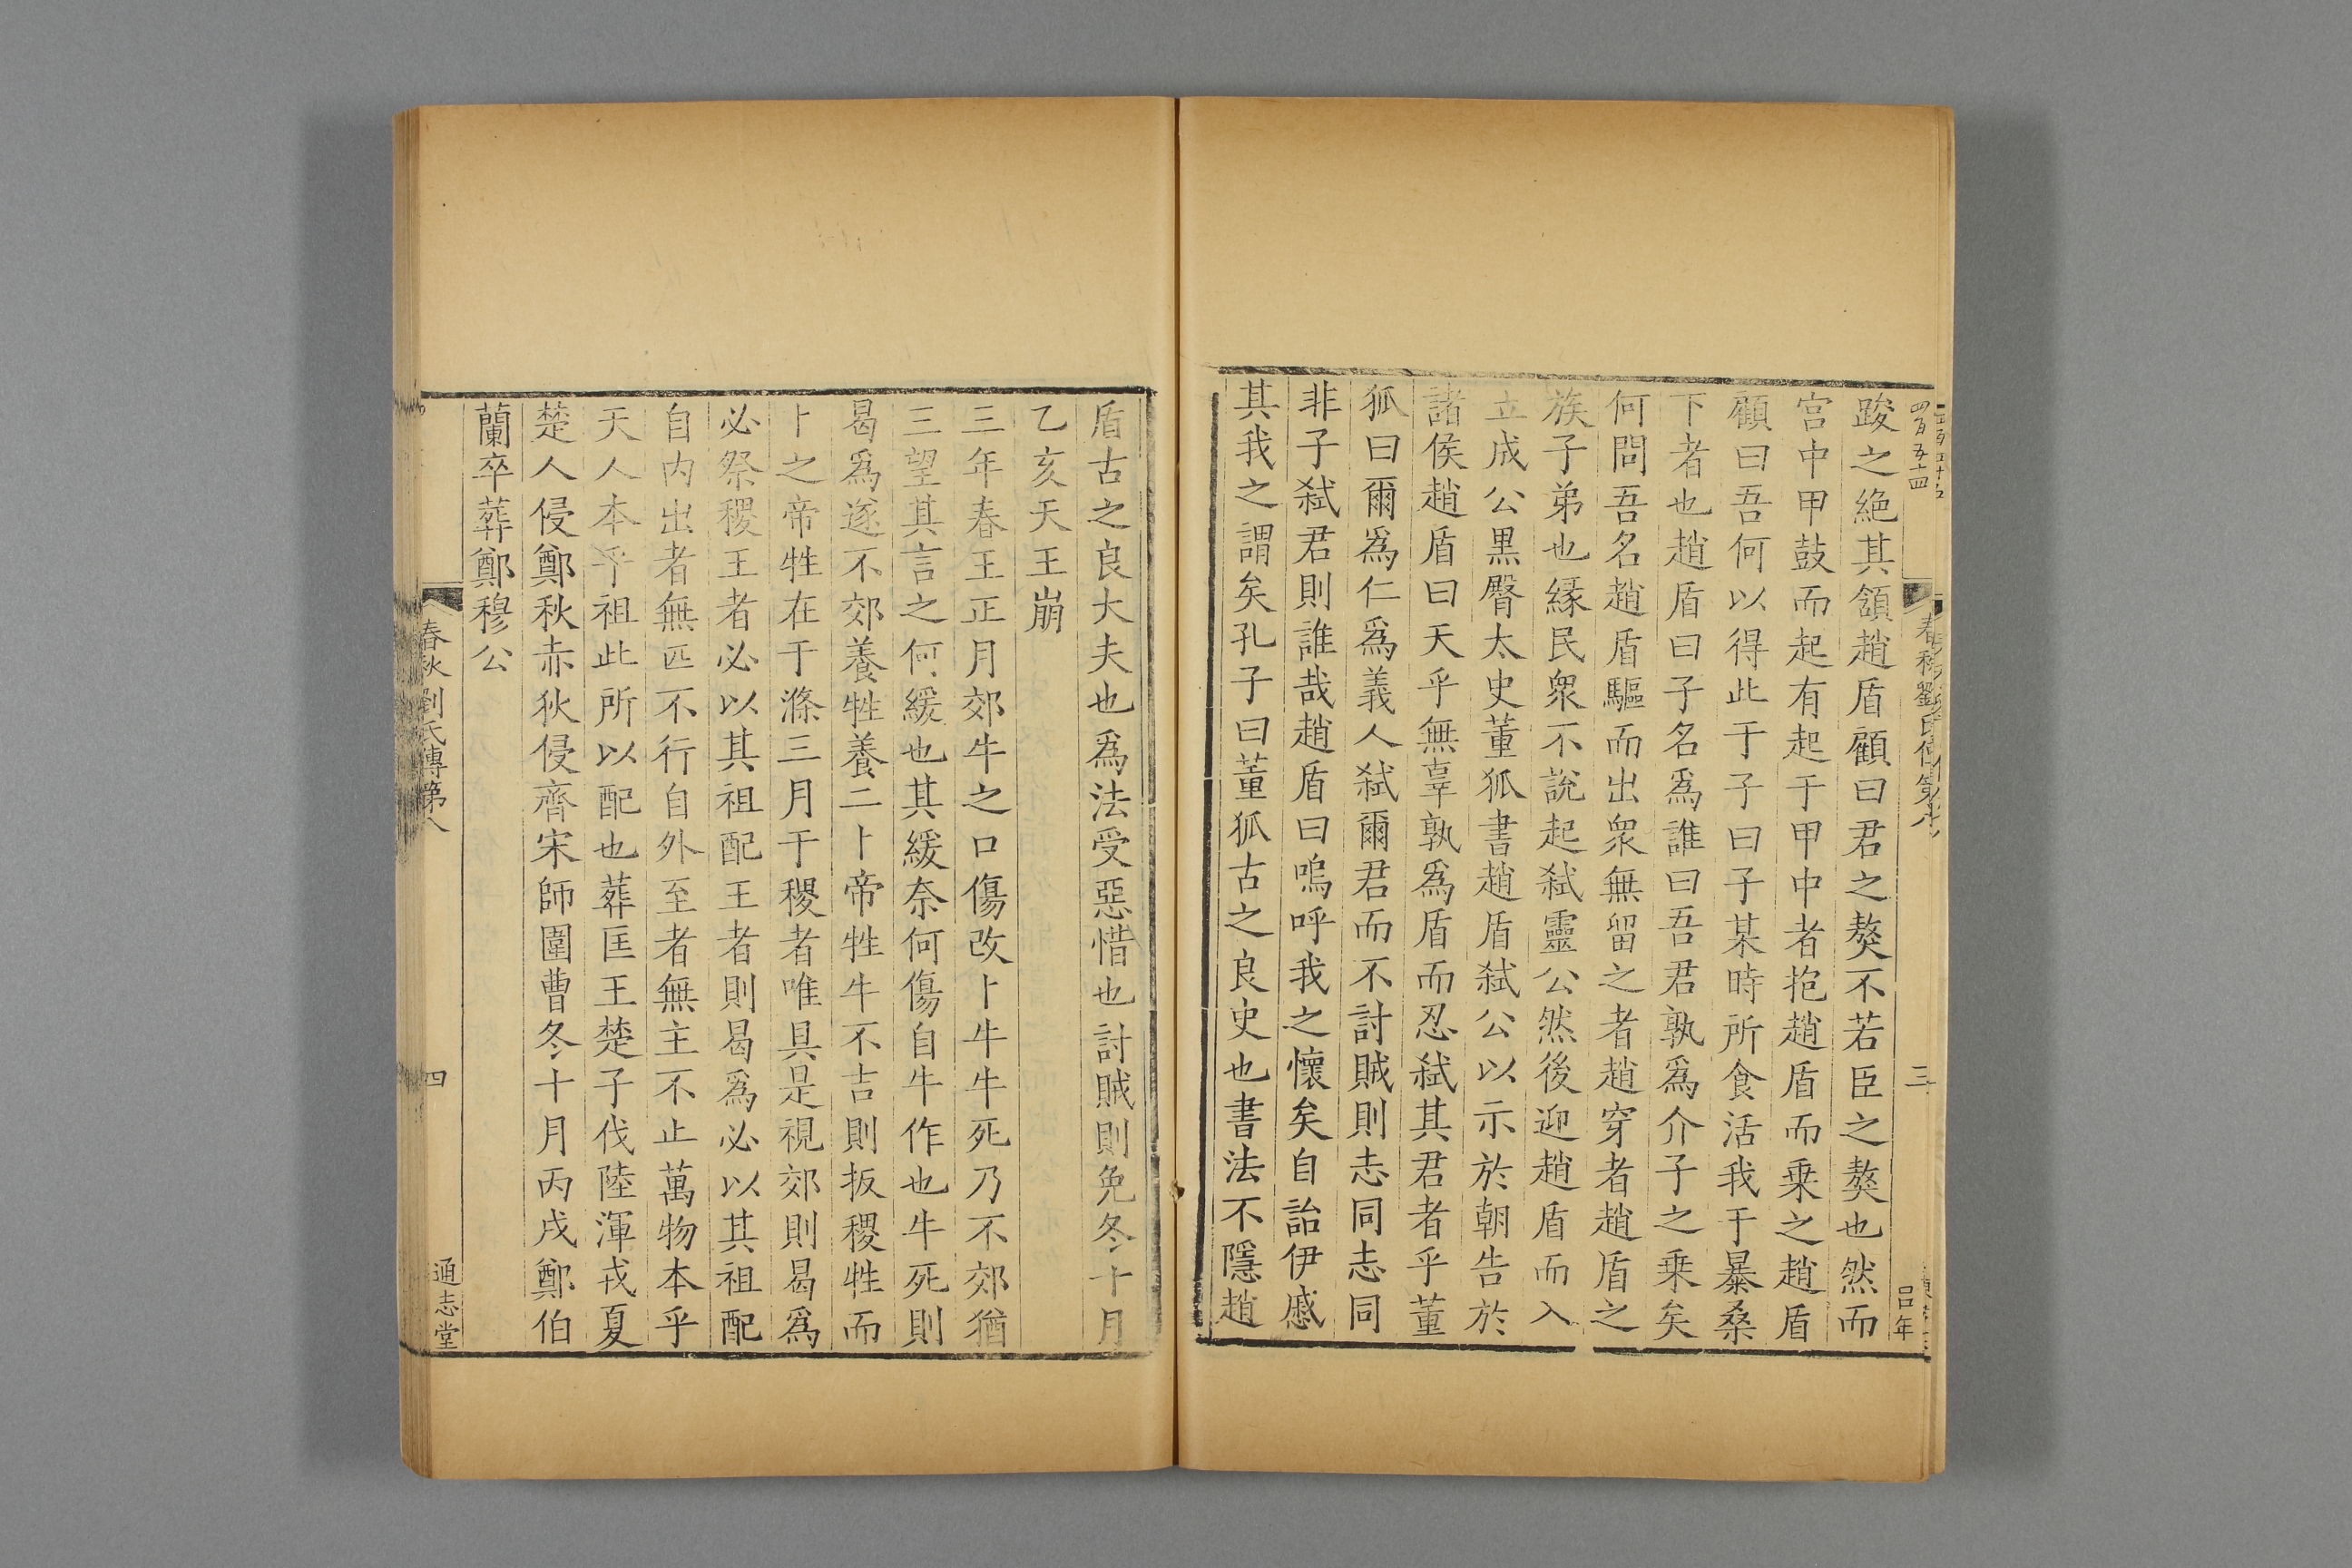 踆之絶其頷趙盾顧曰君之獒不若臣之獒也然而
宫中甲鼓而起有起于甲中者抱趙盾而乗之趙盾
顧曰吾何以得此于子曰子某時所食活我于暴桑
下者也趙盾曰子名爲誰曰吾君孰爲介子之乗矣
何問吾名趙盾驅而出衆無留之者趙穿者趙盾之
族子弟也縁民衆不說起弑靈公然後迎趙盾而入
立成公黒臀太史董狐書趙盾弑公以示於朝告於
諸侯趙盾曰天乎無辜孰爲盾而忍弑其君者乎董
狐曰爾爲仁爲義人弑爾君而不討賊則志同志同
非子弑君則誰哉趙盾曰嗚呼我之懷矣自詒伊慼
其我之謂矣孔子曰董狐古之良史也書法不隱趙
盾古之良大夫也爲法受惡惜也討賊則免冬十月
乙亥天王崩
三年春王正月郊牛之口傷改卜牛牛死乃不郊猶
三望其言之何緩也其緩奈何傷自牛作也牛死則
曷爲遂不郊養牲養二卜帝牲牛不吉則扳稷牲而
卜之帝牲在于滌三月于稷者唯具是視郊則曷爲
必祭稷王者必以其祖配王者則曷爲必以其祖配
自内出者無匹不行自外至者無主不止萬物本乎
天人本乎祖此所以配也葬匡王楚子伐陸渾戎夏
楚人侵鄭秋赤狄侵齊宋師圍曹冬十月丙戌鄭伯
蘭卒葬鄭穆公
春秋劉氏傳第八
四
通志堂
四百五十四
三
吕年